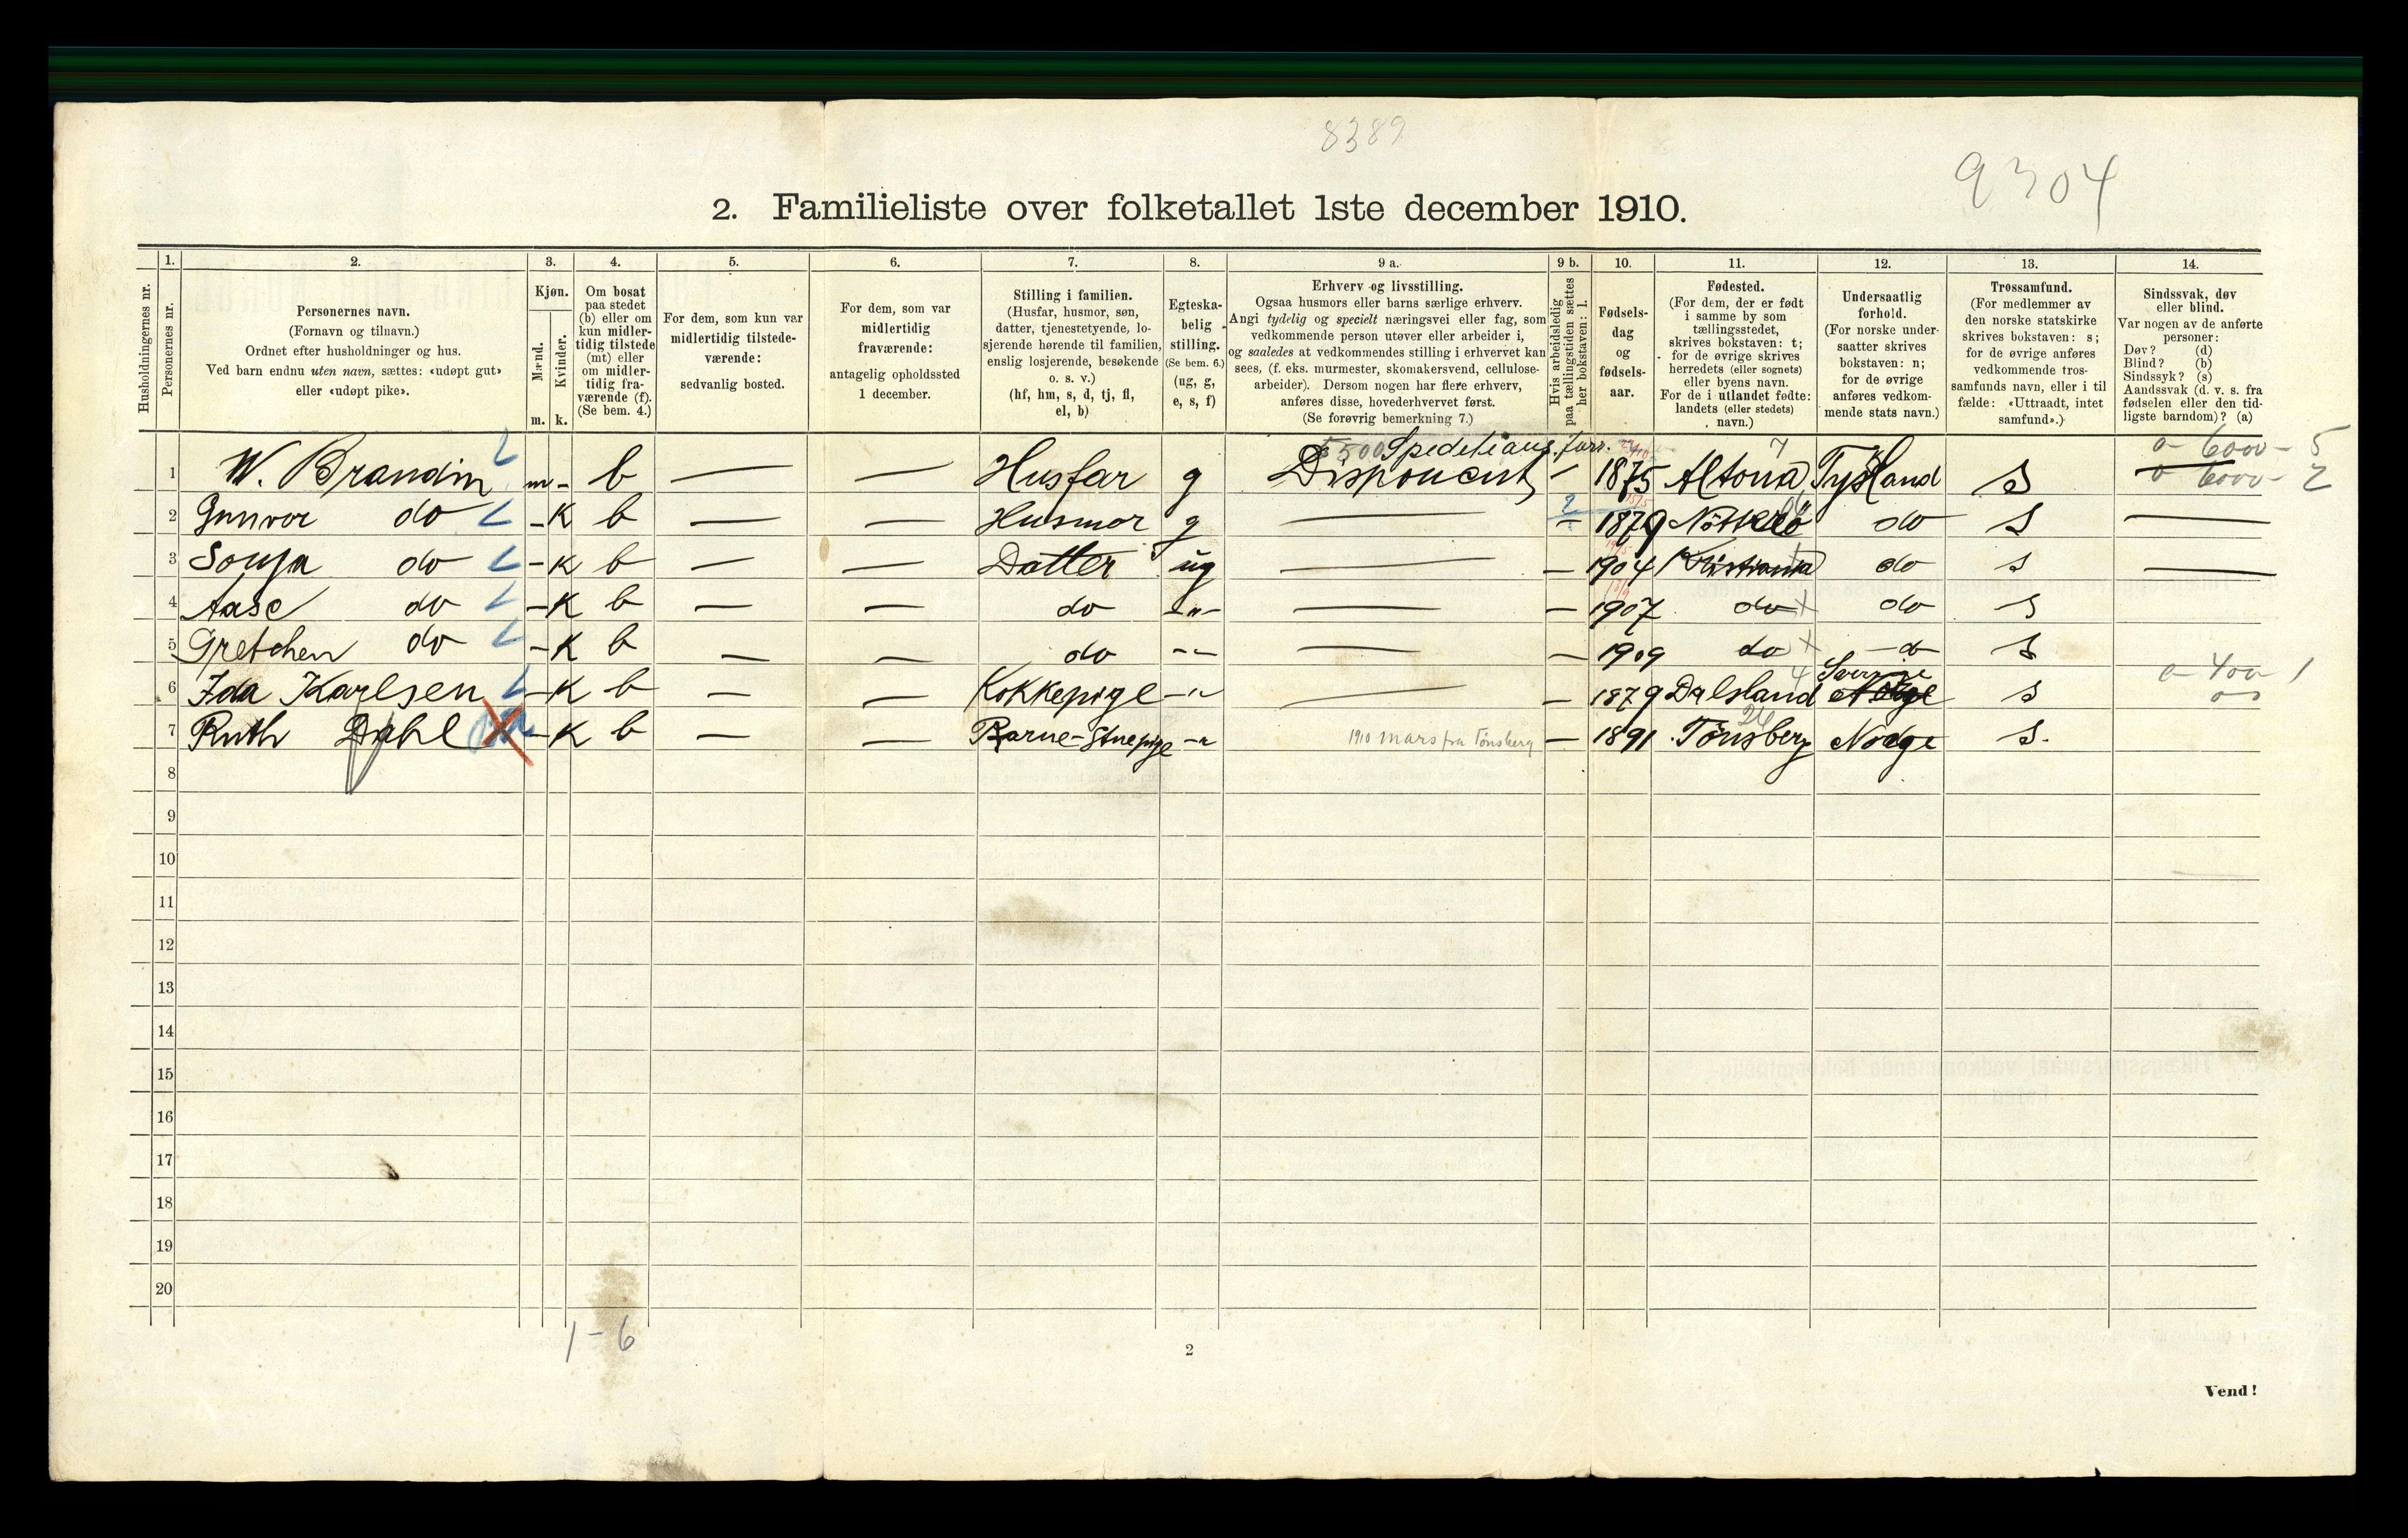 8389
9304
2. Familieliste over folketallet 1ste december 1910.
Husholdningernes nr.
1. Personernes nr.
2. Personernes navn.
(Fornavn og tilnavn.)
Ordnet efter husholdninger og hus.
Ved barn endnu uten navn, sættes: «udøpt gut»
eller «udøpt pike».
3. Kjøn.
Mænd. m.
Kvinder. k.
4. Om bosat
paa stedet
(b) eller om
kun midler-
tidig tilstede
(mt) eller
om midler-
tidig fra-
værende (f).
(Se bem. 4.)
5. For dem, som kun var
midlertidig tilstede-
værende:
sedvanlig bosted.
6. For dem, som var
midlertidig
fraværende:
antagelig opholdssted
1 december.
7. Stilling i familien.
(Husfar, husmor, søn,
datter, tjenestetyende, lo-
sjerende hørende til familien,
enslig losjerende, besøkende
o. s. v.)
(hf, hm, s, d, tj, fl,
el, b)
8. Egteska-
belig
stilling.
(Se bem. 6.)
(ug, g,
e, s, f)
9 a. Erhverv og livsstilling.
Ogsaa husmors eller barns særlige erhverv.
Angi tydelig og specielt næringsvei eller fag, som
vedkommende person utøver eller arbeider i,
og saaledes at vedkommendes stilling i erhvervet kan
sees, (f. eks. murmester, skomakersvend, cellulose-
arbeider). Dersom nogen har flere erhverv,
anføres disse, hovederhvervet først.
(Se forøvrig bemerkning 7.)
9 b. Hvis arbeidsledig
paa tællingstiden sættes
her bokstaven: l.
10. Fødsels-
dag
og
fødsels-
aar.
11. Fødested.
(For dem, der er født
i samme by som
tællingsstedet,
skrives bokstaven: t;
for de øvrige skrives
herredets (eller sognets)
eller byens navn.
For de i utlandet fødte:
landets (eller stedets)
navn.)
12. Undersaatlig
forhold.
(For norske under-
saatter skrives
bokstaven: n;
for de øvrige
anføres vedkom-
mende stats navn.)
13. Trossamfund.
(For medlemmer av
den norske statskirke
skrives bokstaven: s;
for de øvrige anføres
vedkommende tros-
samfunds navn, eller i til
fælde: «Uttraadt, intet
samfund».)
14. Sindssvak, døv
eller blind.
Var nogen av de anførte
personer:
Døv? (d)
Blind? (b)
Sindssyk? (s)
Aandssvak (d. v. s. fra
fødselen eller den tid-
ligste barndom)? (a)
Spedetions forr. 7 0 - 6000 - 5
1 W. Brandin m - b — — Husfar g Disponent - 1875 Altona Tyskland S 0 6000 - 2
2 Gunvor do - K b — — Husmor g — - 1879 do S —
3 Sonja do - K b — — Datter ug — - 1904 Kristiania do s —
4 Aase do - K b — — do -"- — - 1907 do do s
5 Gretchen do - K b — — do -"- — - 1909 do - do S
Sverige 0 - 400 1
6 Ida Karlsen - K b — — Kokkepige -"- — - 1879 Dalsland Norge s
7 Ruth Dahl - K b — — Barne-Stuepige -"- 1910 mars fra Tönsberg - 1891 Tönsberg Norge S.
8
9
10
11
12
13
14
15
16
17
18
19
20
1 - 6
2
Vend!